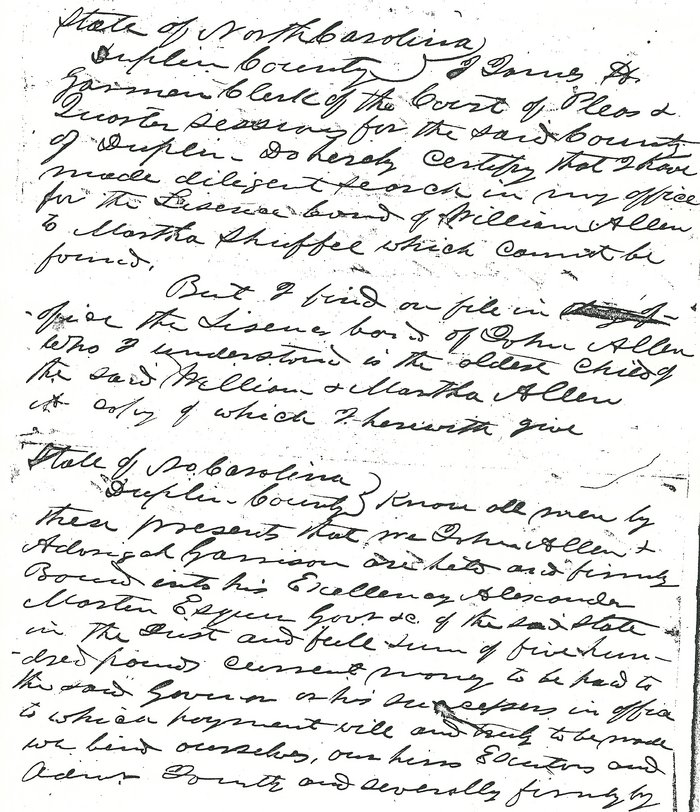 State of North Carolina
Duplin County } I James H.
Garmen Clerk of the Court of Pleas &
Quarter sessions for the said County
of Duplin - Do hereby Certify that I have
made diligent search in my office
for the Lisence bond of William Allen
to Martha Shuffel which cannot be
found.
But I find on file in
office the Lisence bond of John Allen
who I understand is the oldest child of
the said William & Martha Allen
A copy of which I herewith give
State of No. Carolina
Duplin - County } Know all men by
these presents that we John Allen &
Garrison are held and firmly
Bound unto his Excellency Alexander
Martin Esquir Govr &c. of the said State
in the Just and full sum of five hun-
-dred pounds current money to be paid to
the said Governor or his successors in office
to which payment will and truly to be made
we bind ourselves, our hirs Executors and
Admr. Jointly and severally firmly by